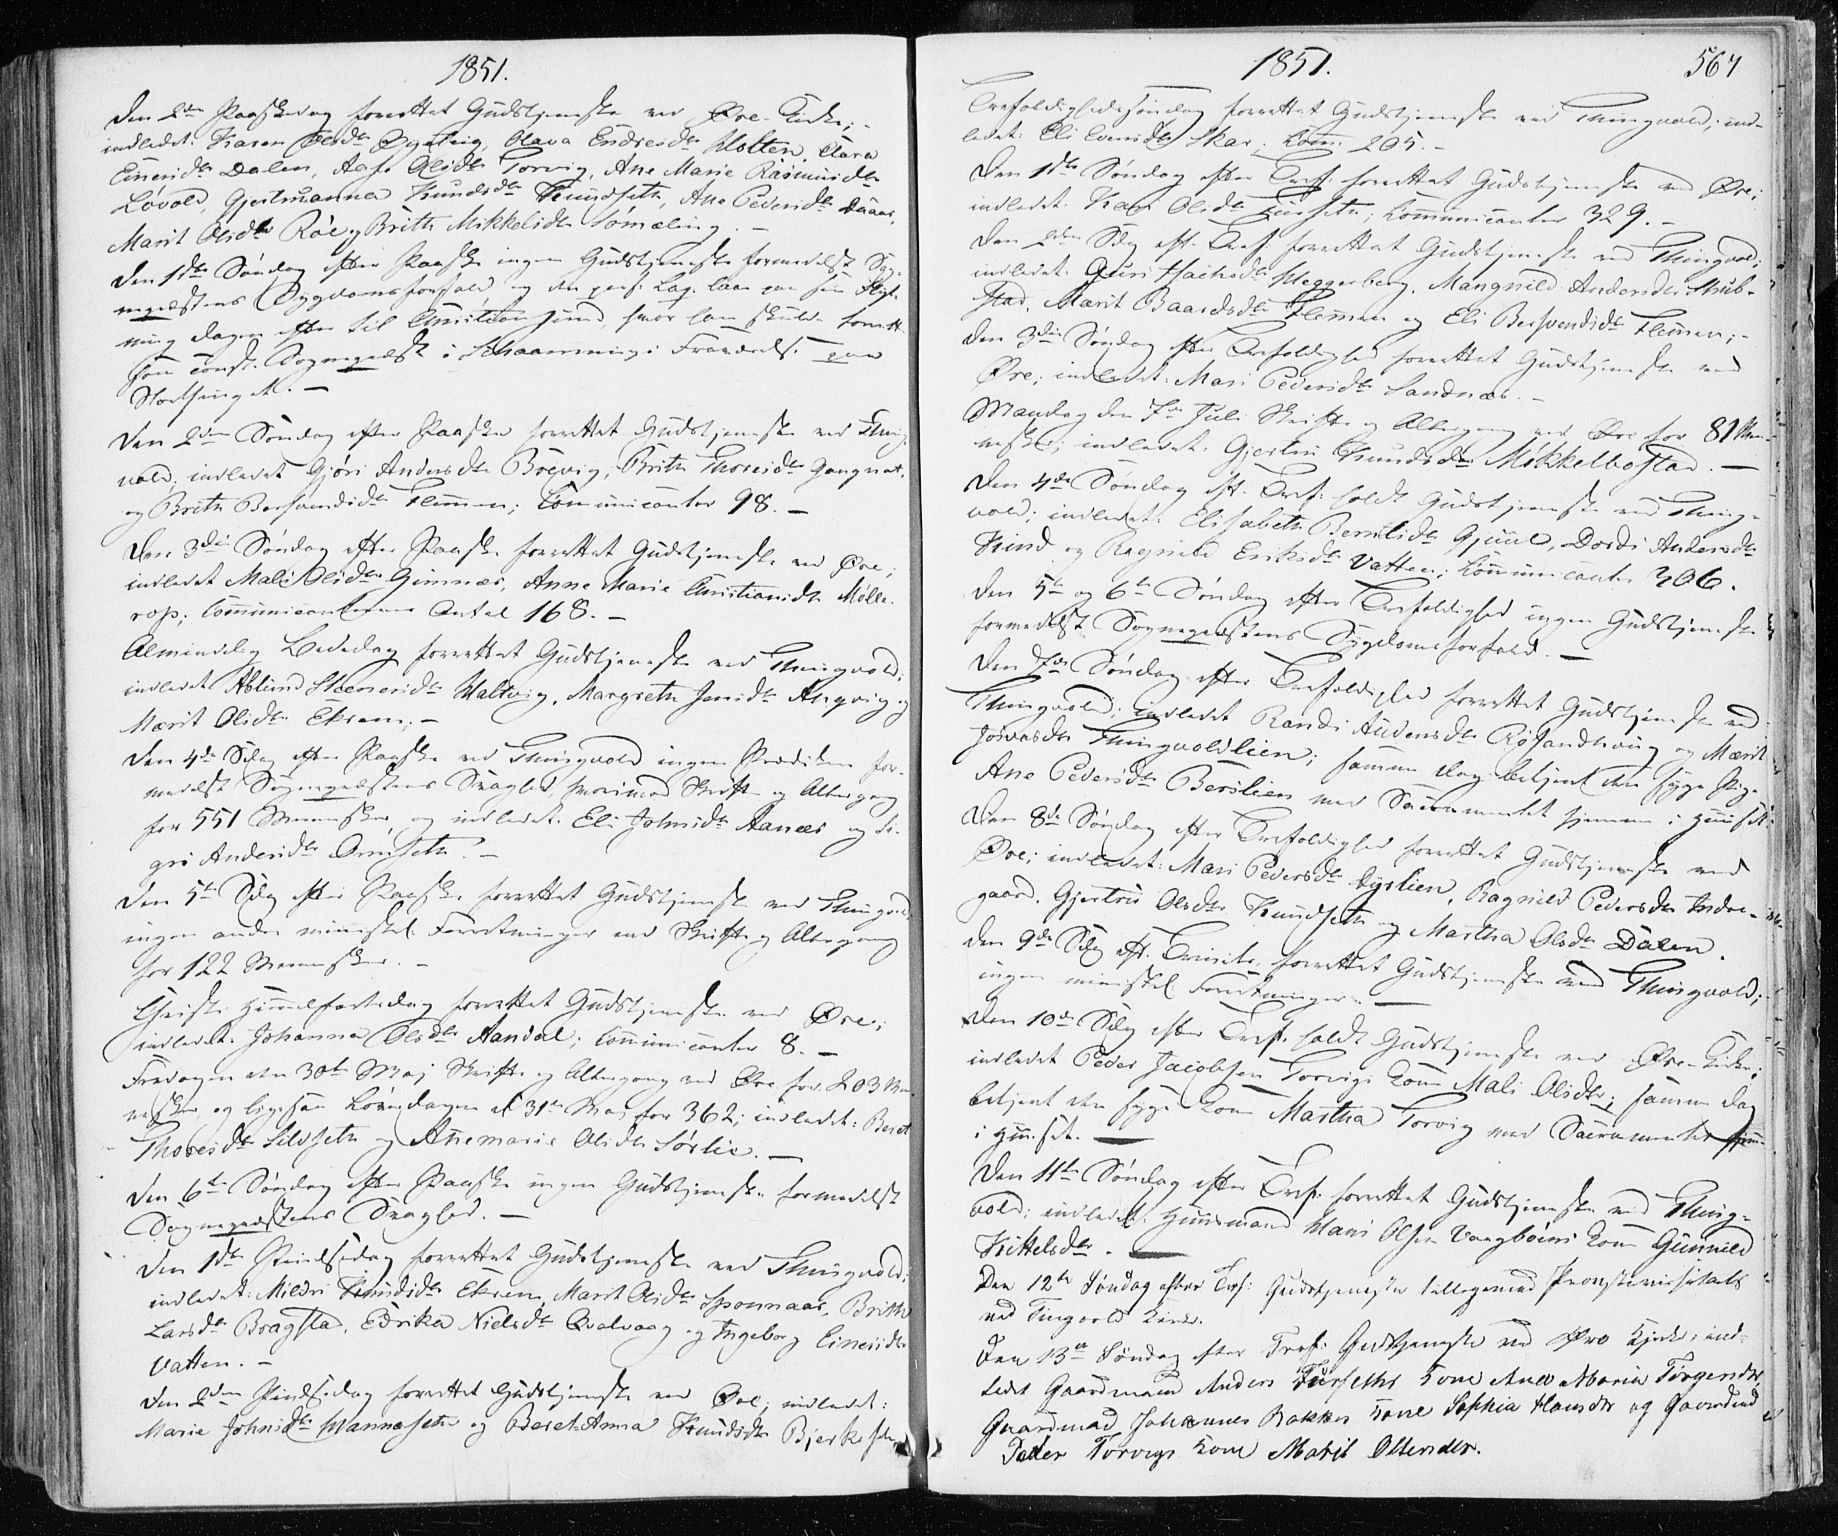 1851.
den 2den Paaskedag forrettet Gudstjeneste ved Øre-Kirke;-
indledet: Karen Olsdtr Bygteig, Olava Endresdtr Holten, Clara
Einersdtr Dalen, Aase Olsdtr Torvig, Ane Marie Rasmusdtr
Løvold, Gjertruanna Knudsdtr Knudseth, Ane Pedersdtr
Marit Olsdtr Røe og Brith Mikkelsdtr Sømæling. -
Den 1ste Søndag efter Paaske ingen Gudstjeneste formedelst Sog-
nepræstens Sygdomsforfald og den pers: Cap: laae paa sin Flyt-
ning dagen efter til Christiansund, hvor han skulde forrett
som const. Sognepræst i Schaanning's Fraværelse paa
Storthinget. -
Den 2den Søndag efter Paaske forrettet Gudstjeneste ved Thing-
vold, indledet Gjøri Andersdtr Bøevig, Brith Thoresdtr Gangnat,
og Brith Bersvendsdtr Flemmen; Communicanter 98. -
Den 3die Søndag efter Paaske forrettet Gudstjeneste ved Øre;
indledet Mali Olsdtr Gimnæs, Anne Marie Christiansdtr Mølle-
rop; Communicanternes Antal 168. -
Almindelig Bededag forrettet Gudstjeneste ved Thingvold;
indledet Ablund Steenersdtr Haltvig, Margreth Jensdtr Angvig og
Mærit Olsdtr Ekrem; -
Den 4de Sdag efter Paaske ved Thingvold ingen Prædiken for-
medelst Sognepræstens Svaghed, hvorimod Skrifte og Altergang
for 551 Mennesker, og indledet Eli Johnsdtr Aanæs og Si-
gri Andersdtr Ormseth. -
Den 5te Sdag efter Paaske forrettet Gudstjeneste ved Thingvold
ingen anden ministel. Forretninger end Skrifte og Altergang
for 122 Mennesker. -
Christi Himmelfartsdag forrettet Gudstjeneste ved Øre;
indledet: Johanna Olsdtr Aandal; Communicanter 8. -
Fredagen den 30te Maj Skrifte og Altergang ved Øre for 203 Men-
nesker, og ligesaa Løverdagen d. 31te Maj for 362; indledet: Beret
Thoresdtr Silsseth og Anemarie Olsdtr Sørlie. -
Den 6te Søndag efter Paaske ingen Gudstjeneste formedelst
Sognepræstens Svaghed. -
Den 1ste Pindsedag forrettet Gudstjeneste ved Thingvold;
indledet: Mildri Knudsdtr Ekrem, Marit Olsdtr Sponnaas, Brith
Larsdtr Bragstad, Edrika Nielsdtr Qvalvaag og Ingeborg Einersdtr
Vatten. -
Den 2den Pindsedag forrettet Gudstjeneste ved Øre; indledet:
Marie Johnsdtr Wannaseth og Beret-Anna Knudsdtr
1851. 567
Trefoldighedssøndag forrettet Gudstjeneste ved Thingvold; ind-
ledet: Eli Evensdtr Skar; Comm. 205. -
Den 1ste Søndag efter Tref: forrettet Gudstjeneste ved Øre;
indledet: Kari Olsdtr Furseth; Communicanter 329. -
Den 2den Sdag eft. Tref: forrettet Gudstjeneste ved Thingvold;
indledet: Guri Meggerberg, Mangnild Andersdtr Stub-
stad, Marit Baardsdtr Flemmen og Eli Bersvendsdtr Flemmen; -
Den 3die Søndag efter Trefoldighed forrettet Gudstjeneste ved
Øre; indledet: Mari Pedersdtr Sandnæs. -
Mandag den 7de Juli Skrifte og Altergang ved Øre for 81 Men-
nesker, indledet: Gjertru Knudsdtr Mikkelbostad. -
Den 4de Søndag eft. Tref: holdt Gudstjeneste ved Thing-
vold; indledet: Elisabeth Berntsdtr Gjuul, Dordi Andersdtr
Hind og Ragnild Eriksdtr Vatten; Communicanter 306.
Den 5te og 6te Søndag efter Trefoldighed ingen Gudstjeneste
formedelst Sognepræstens Sygdomsforfald. -
Den 7de Søndag efter Trefoldighed forrettet Gudstjeneste ved
Thingvold; indledet Randi Audensdtr Røsandhoug og Mærit
Jonasdtr Thingvoldlien; samme Dag betjent den syge Pige
Ane Pedersdtr Berslien med Sacramentet hjemme i Huset.
Den 8de Søndag efter Trefoldighed forrettet Gudstjeneste ved
Øre; indledet: Mari Pedersdtr Dyrlien, Ragnild Pedersdtr Indre-
gaard, Gjertru Olsdtr Knudseth og Martha Olsdtr Dalen.
Den 9de Sdag eft. Trinit. forrettet Gudstjeneste ved Thingvold;
ingen ministel Forretninger. -
Den 10de Sdag efter Tref. holdt Gudstjeneste ved Øre-Kirke;
indledet Peder Jacobsen Torvigs Kone Mali Olsdtr; samme Dag
betjent den syge Kone Martha Torvig med Sacramentet
i Huset. -
Den 11te Søndag efter Tref: forrettet Gudstjeneste ved Thing-
vold; indledet: Huusmand Hans Olsen Vaagbøens Kone Gunnild
Kittelsdtr. -
Den 12te Søndag efter Tref: Gudstjeneste tilligemed Provstevisitats
ved Tingvold Kirke.
Den 13de Søndag efter Tref: Gudstjeneste ved Øre Kjerke; ind-
ledet Gaardmand Anders Furseths Kone Ane Maria Torgersdtr,
Gaardmand Johannes Bakkes Kone Sophia Hansdtr og Gaardmd
Peder Torvigs Kone Marit Ottersdtr.